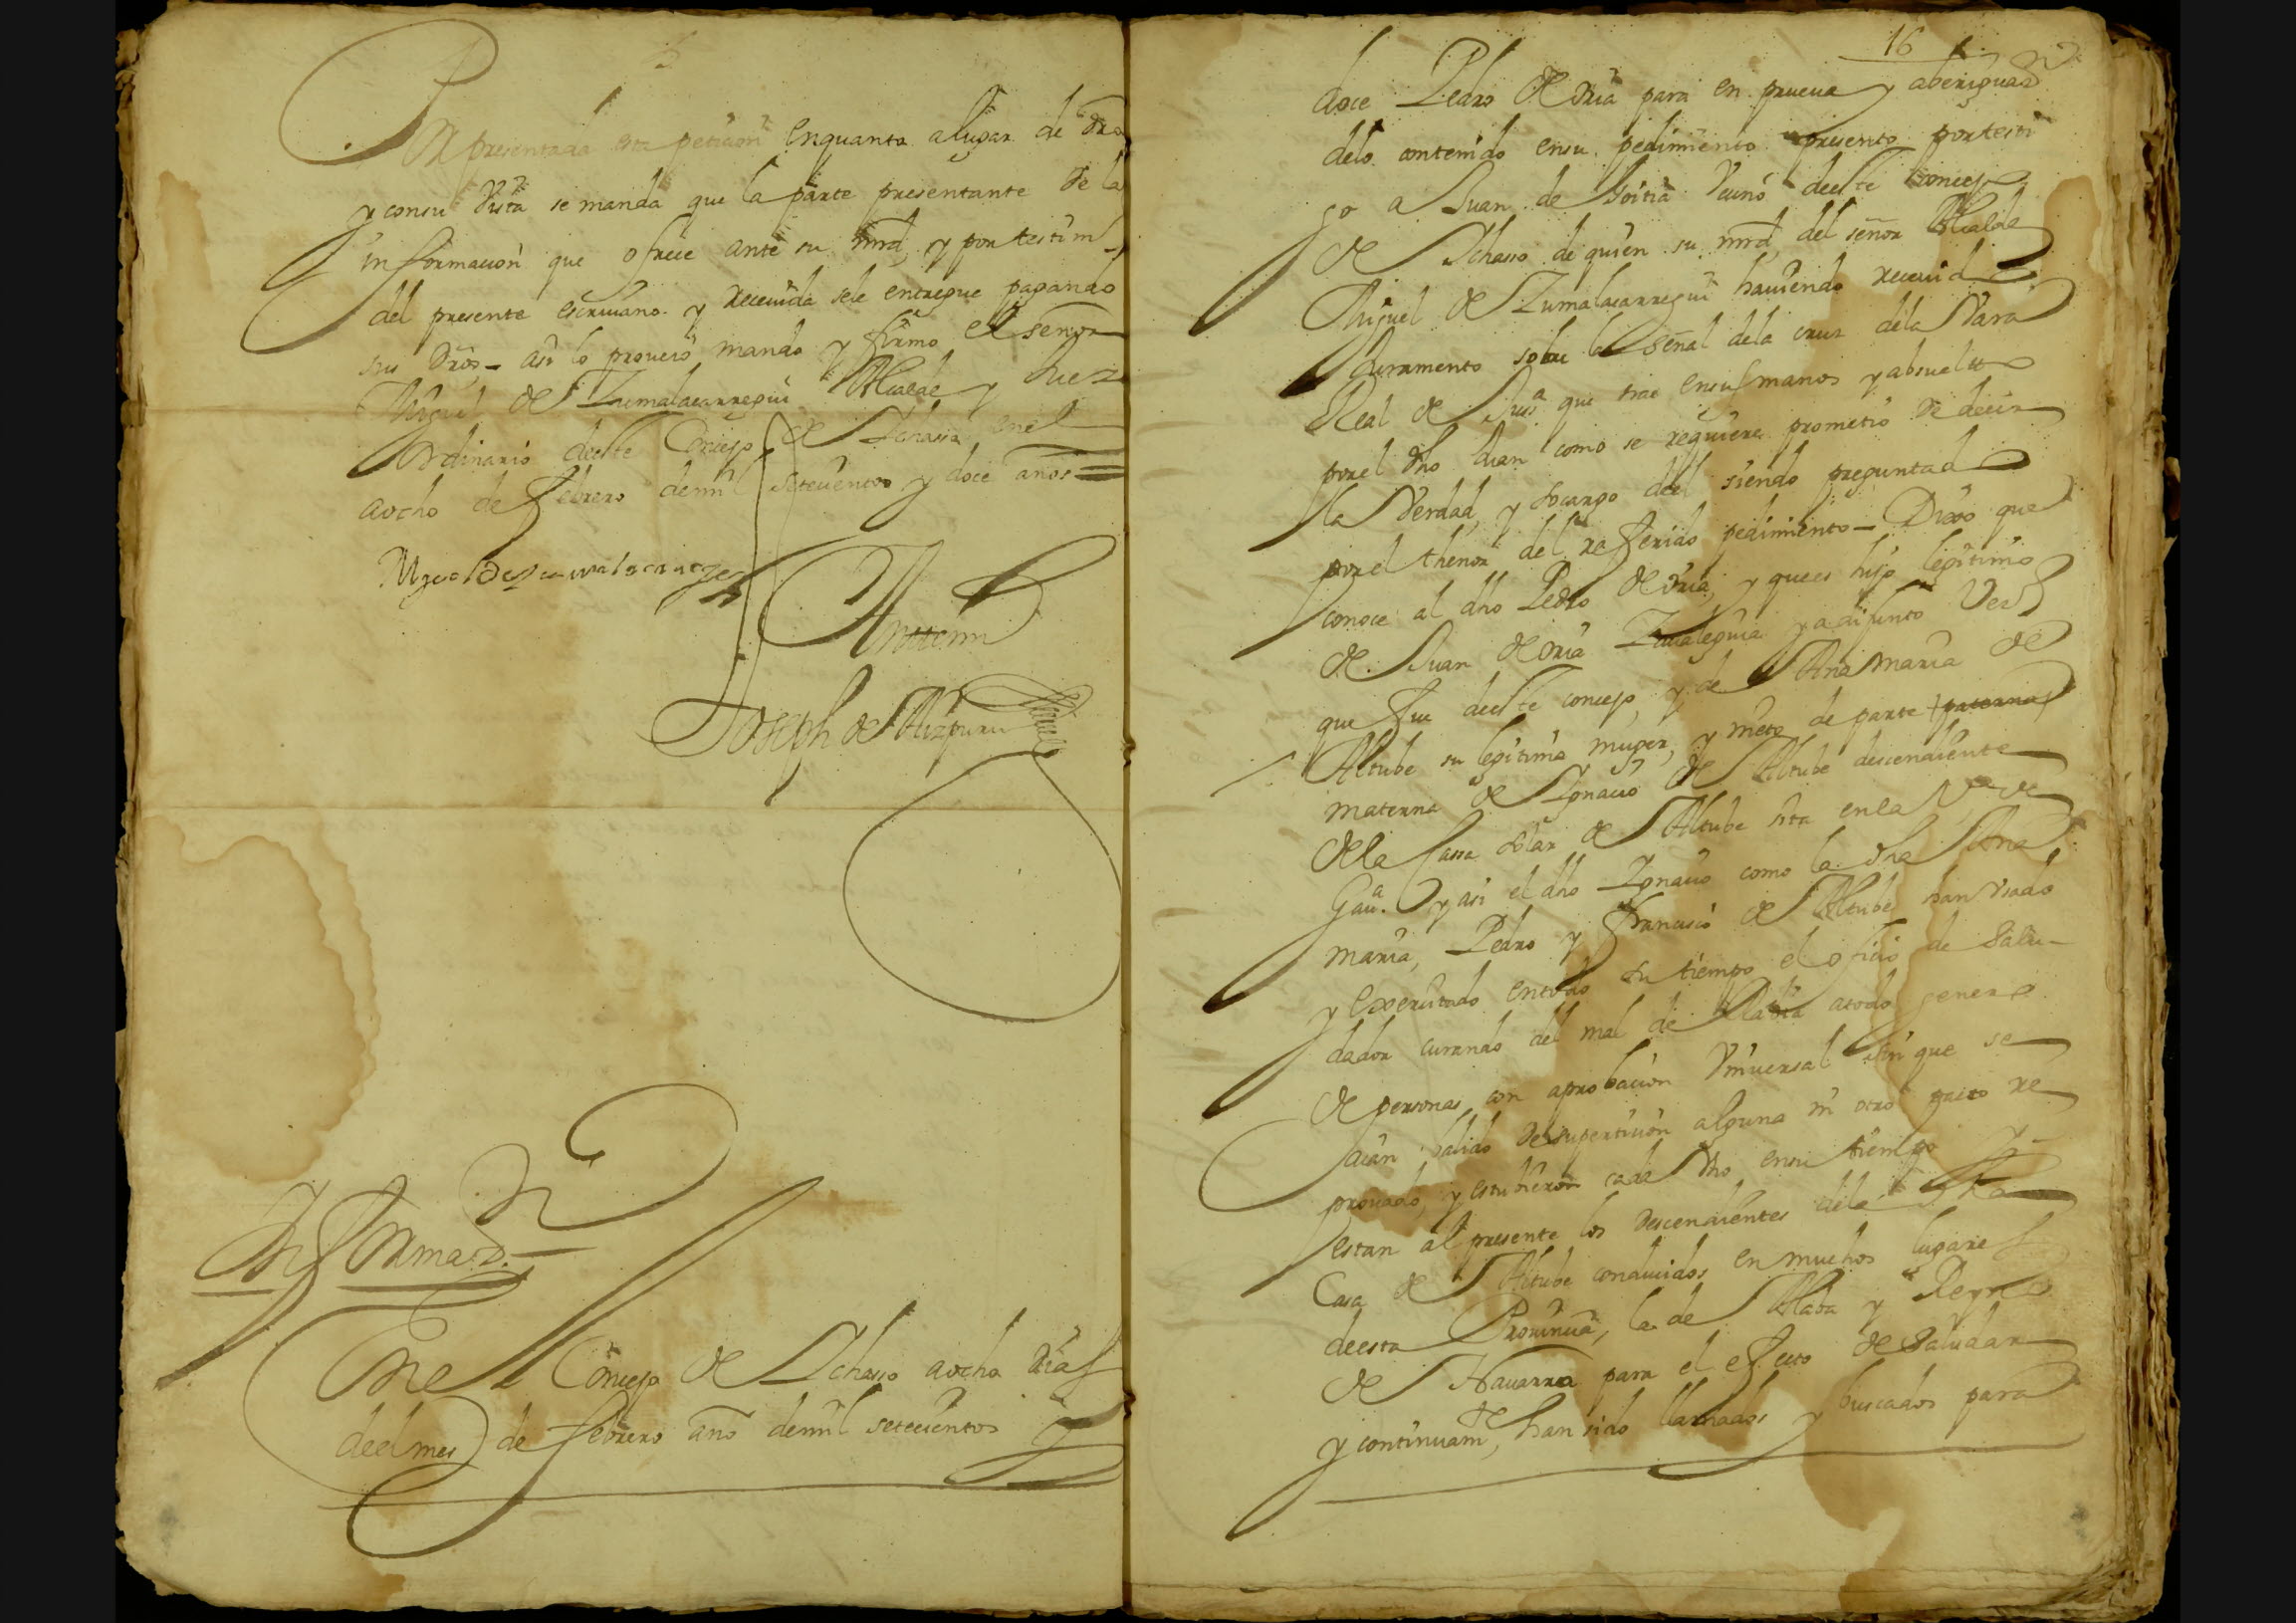 Por presentada esta peticion enquanto a lugar de dro
y consu Vista se manda que la parte presentante de la
informacion que ofrece ante su mrd, y por testim
del presente escriuano y Receuida sele entregue pagando
sus Dros - asi lo proueio mando y firmo el señor
Miguel de Zumalacarregui Alcalde y Juez
Ordinario deeste Concejo de Ichasso enel
a ocho de Febrero demil setecientos y doce años =
Miguel de Zumalacarregui
Antemi
Joseph de Aizpuru
Informaon.
Enel Concejo de Ichasso a ocho dias
deel mes de febrero año demil setecientos y
16
doce Pedro de Oria para en prueua y aberiguaon
delo contenido ensu pedimiento presento por testi
go a Juan de Goitia Vecino deeste Concejo
de Ichasso de quien su mrd, del señor Alcalde
Miguel de Zumalacarregui hauiendo receuido
Juramento sobre la Señal dela cruz dela Vara
Real de Justa que trae ensus manos y absuelto
porel dho Juan como se requiere prometio de decir
la Verdad, y socargo del siendo preguntado
porel thenor del referido pedimiento - Dixo que
conoce al dho Pedro de Oria, y quees hijo legitimo
de Juan de Oria Zaualeguia ya difunto Vezo
que fue deeste concejo, y de Ana maria de
Altube su legitima muger, y nieto de parte paterna
materna de Ignacio de Altube descendiente
dela Cassa solar de Altube sita enla Va de
Gaua. Y asi el dho Ignacio como la dha Ana
maria, Pedro y Francisco de Altube han Vsado
y Exercitado entodo su tiempo el oficio de Salu-
dador curando del mal de Rabia atodo genero
de personas con aprobacion Vniuersal sin que se
aian Valido desuperticion alguna ni otro pacto re
prouado, y estubieron cada Vno ensu tiempo y
estan al presente los descendientes dela dha
Casa de Altube conducidos en muchos lugares
deesta Prouincia, la de Alaba y Reyno
de Nauarra para el efecto de Saludar
y continuamte, han sido llamados y buscados para